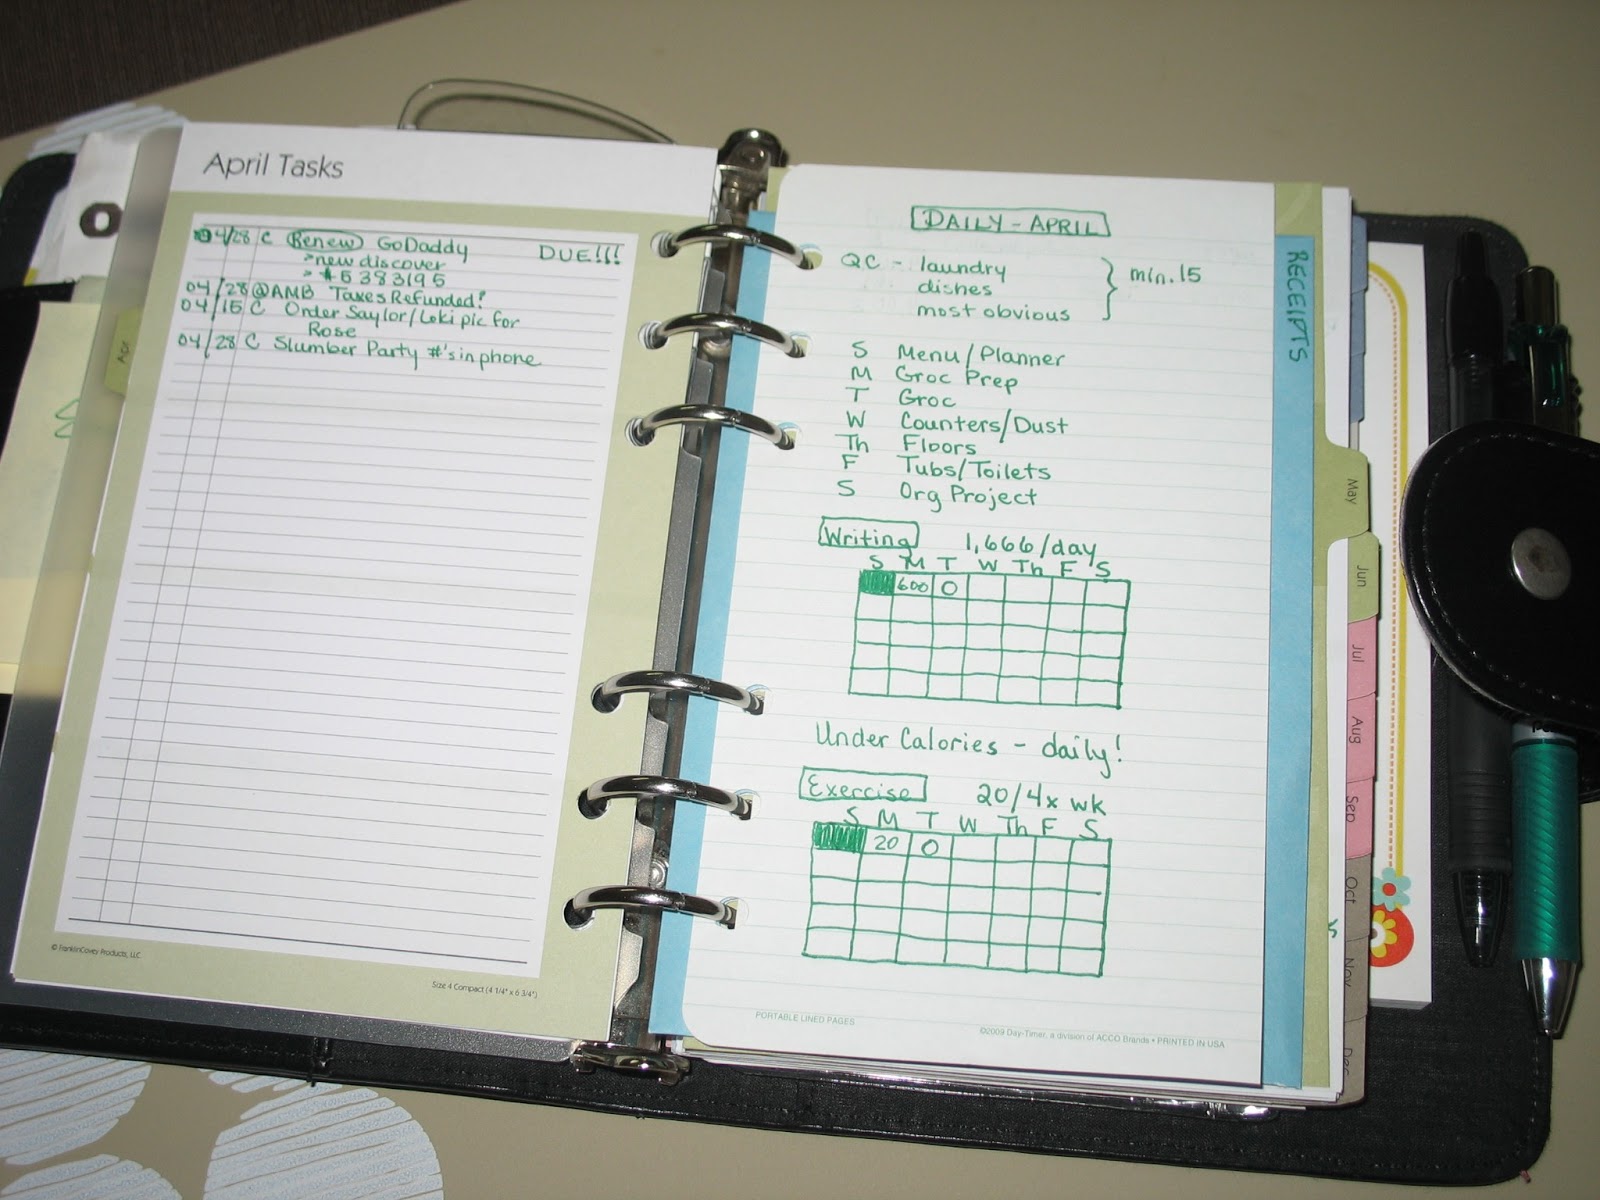 April Tasks
4/28 C Renew GoDaddy DUE!!!
>new discover
> #6383195
04/28 @AMB Taxes Refunded?
04/15 C Order Saylor/Loki pic for
Rose
04/28 C Slumber Party #'s in phone
© FranklinCovey Products, LLC
Size 4 Compact (4 1/4" x 6 3/4")
Apr
DAILY - APRIL
QC - laundry
dishes
most obvious
} min. 15
S Menu/Planner
M Groc Prep
T Groc
W Counters/Dust
Th Floors
F Tubs/Toilets
S Org Project
Writing 1,666/day
S M T W Th F S
600 0
Under Calories - daily!
Exercise 20/4x wk
S M T W Th F S
20 0
PORTABLE LINED PAGES
©2009 Day-Timer, a division of ACCO Brands • PRINTED IN USA
RECEIPTS
May
Jun
Jul
Aug
Sep
Oct
Nov
Dec